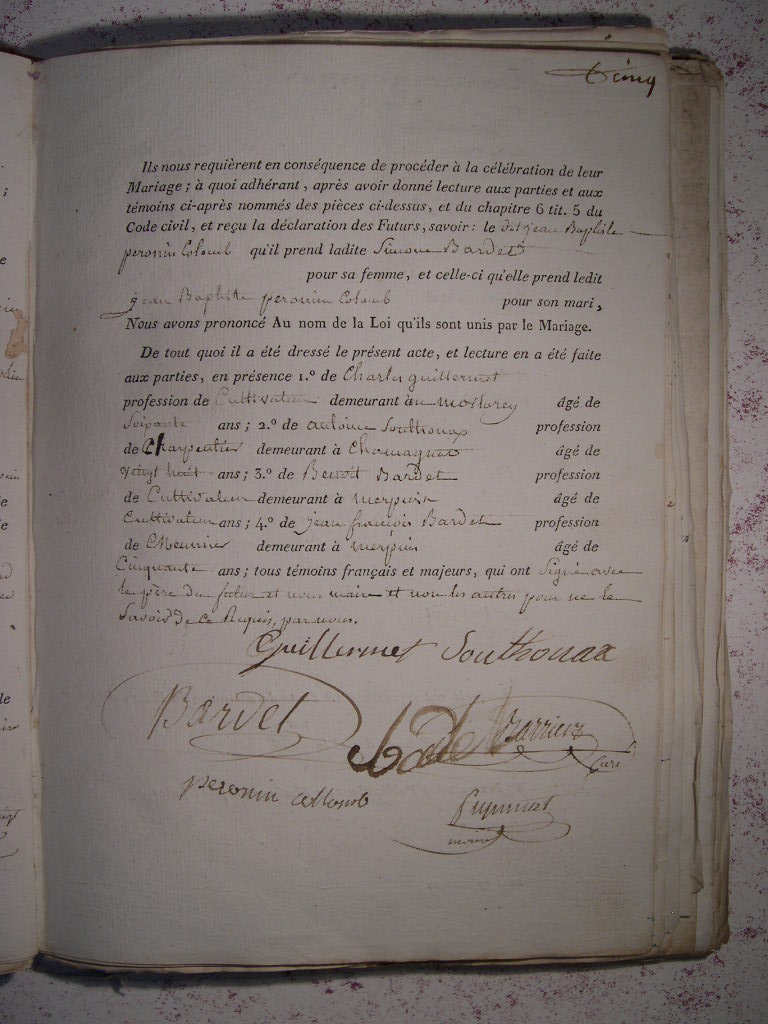 cinq
Ils nous requièrent en conséquence de procéder à la célébration de leur
Mariage ; à quoi adhérant, après avoir donné lecture aux parties et aux
témoins ci-après nommés des pièces ci-dessus, et du chapitre 6 tit. 5 du
Code civil, et reçu la déclaration des Futurs, savoir : le dit jean Baptiste
peronin Colomb qu'il prend ladite Simone Bardet
pour sa femme, et celle-ci qu'elle prend ledit
jean Baptiste peronin Colomb pour son mari,
Nous avons prononcé Au nom de la Loi qu'ils sont unis par le Mariage.
De tout quoi il a été dressé le présent acte, et lecture en a été faite
aux parties, en présence 1.º de Charles guillermet
profession de Cultivateur demeurant à âgé de
Soixante ans ; 2.º de antoine Southonax profession
de Charpentier demeurant à Chamagnet âgé de
vingt huit ans ; 3.º de Benoit Bardet profession
de Cultivateur demeurant à merpuis âgé de
Cultivateur ans ; 4.º de jean francois Bardet profession
de Meunier demeurant à merpuis âgé de
Cinquante ans ; tous témoins français et majeurs, qui ont Signé avec
le père du futur et nous maire et non les autres pour ne le
Savoir de ce Requis, par nous.
Guillermet Southonax
Bardet Barrieux
Curé
peronin collomb